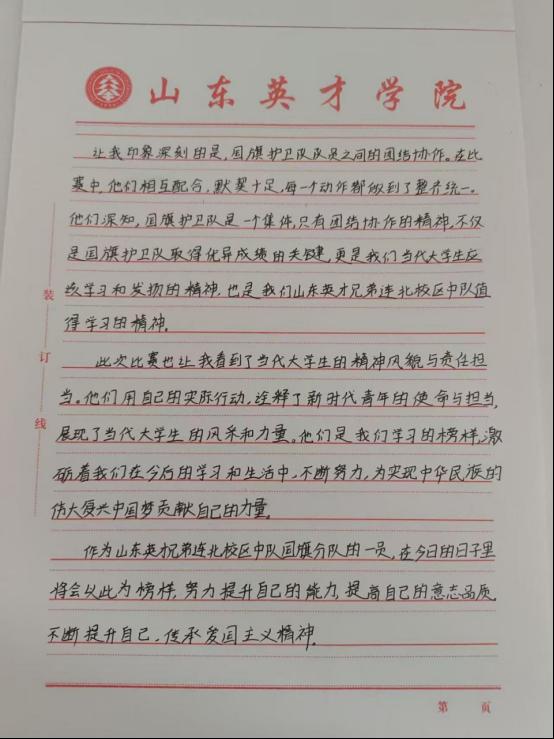 山东英才学院
让我印象深刻的是,国旗护卫队队员之间的团结协作。在此
赛中,他们相互配合,默契十足,每一个动作都做到了整齐统一。
他们深知,国旗护卫队是一个集体,只有团结协作的精神,不仅
是国旗护卫队取得优异成绩的关键,更是我们当代大学生应
该学习和发扬的精神,也是我们山东英才兄弟连北校区中队值
得学习的精神。
此次比赛也让我看到了当代大学生的精神风貌与责任担
当。他们用自己的实际行动,诠释了新时代青年的使命与担当,
展现了当代大学生的风采和力量。他们是我们学习的榜样,激
砺着我们在今后的学习和生活中,不断努力,为实现中华民族的
伟大复兴中国梦贡献自己的力量。
作为山东英才兄弟连北校区中队国旗分队的一员,在今日的日子里
将会以此为榜样,努力提升自己的能力,提高自己的意志品质,
不断提升自己,传承爱国主义精神。
装
订
线
第 页